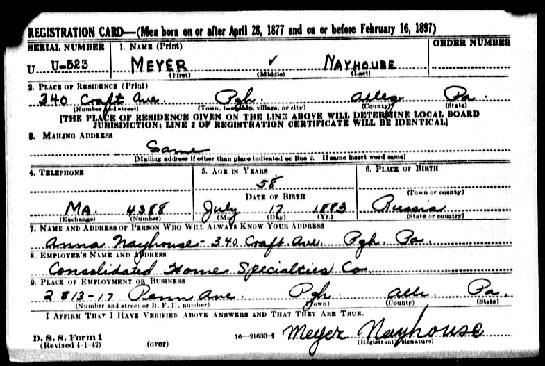 REGISTRATION CARD—(Men born on or after April 28, 1877 and on or before February 16, 1897)
SERIAL NUMBER 1. NAME (Print) ORDER NUMBER
U U-523 MEYER ✓ NAYHOUSE
(First) (Middle) (Last)
2. PLACE OF RESIDENCE (Print)
340 Craft Ave Pgh. Alleg Pa.
(Number and street) (Town, township, village, or city) (County) (State)
[THE PLACE OF RESIDENCE GIVEN ON THE LINE ABOVE WILL DETERMINE LOCAL BOARD
JURISDICTION; LINE 2 OF REGISTRATION CERTIFICATE WILL BE IDENTICAL]
3. MAILING ADDRESS
Same
[Mailing address if other than place indicated on line 2. If same insert word same]
4. TELEPHONE 5. AGE IN YEARS 6. PLACE OF BIRTH
58
DATE OF BIRTH (Town or county)
MA. 4388 July 17 1883 Russia
(Exchange) (Number) (Mo.) (Day) (Yr.) (State or country)
7. NAME AND ADDRESS OF PERSON WHO WILL ALWAYS KNOW YOUR ADDRESS
Anna Nayhouse - 340 Craft Ave Pgh Pa
8. EMPLOYER'S NAME AND ADDRESS
Consolidated Home Specialties Co
9. PLACE OF EMPLOYMENT OR BUSINESS
2813-17 Penn Ave Pgh Alle Pa.
(Number and street or R. F. D. number) (Town) (County) (State)
I AFFIRM THAT I HAVE VERIFIED ABOVE ANSWERS AND THAT THEY ARE TRUE.
D. S. S. Form 1
(Revised 4-1-42) (over) 16—21630-1 Meyer Nayhouse
(Registrant's signature)